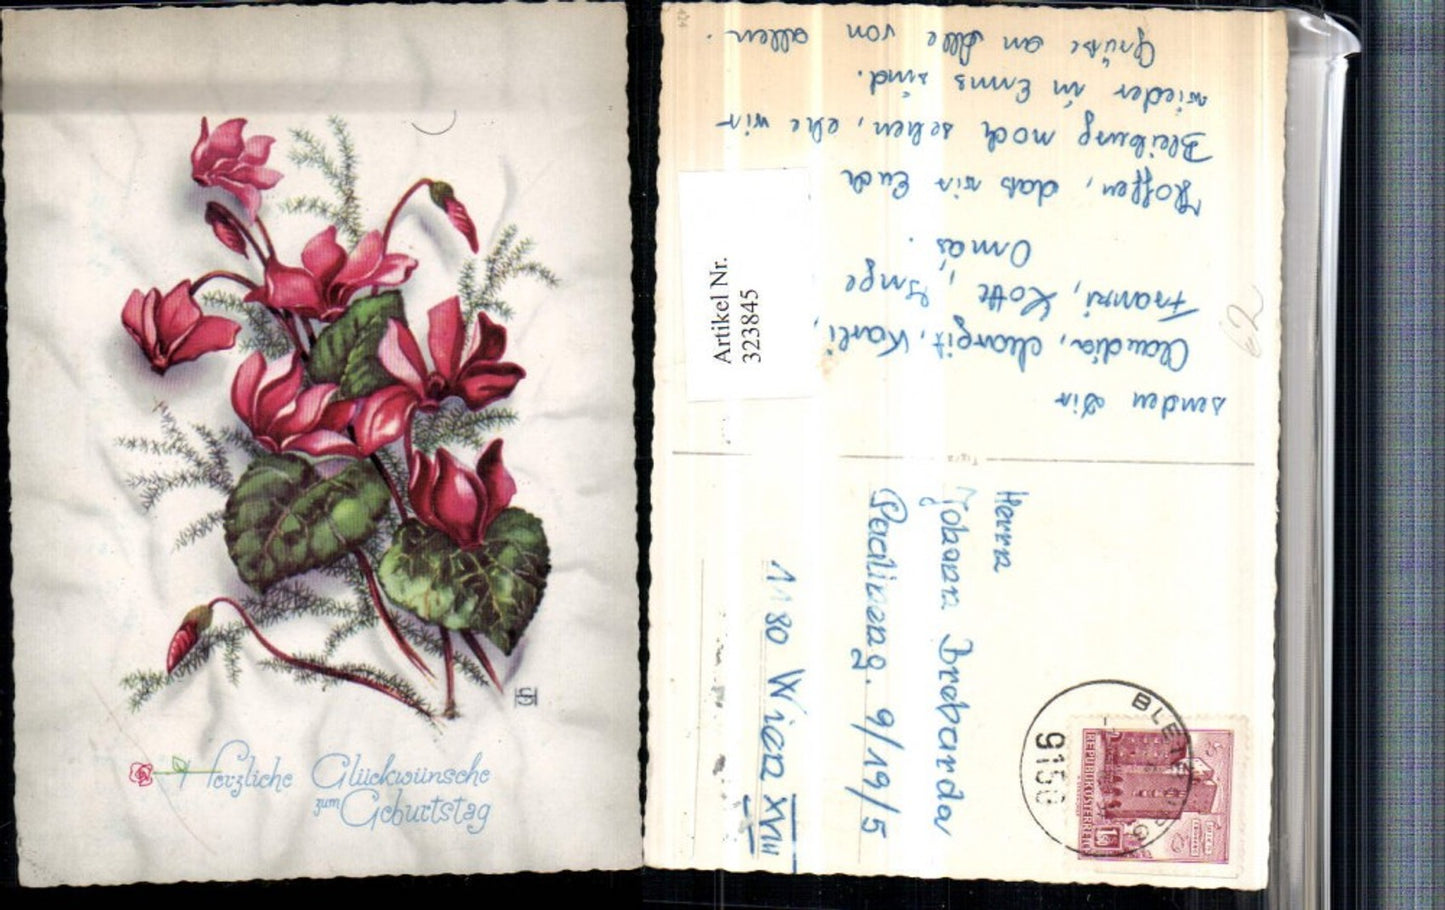 Herzliche Glückwünsche
zum
Geburtstag
senden Dir
Claudia, Margit, Karli,
Franzi, Lotte, Inge
Omas.
Hoffen, das wir Euch
Bleiburg noch sehen, ehe wir
wieder in Enns sind.
Grüße an Alle von allen.
Artikel Nr.
323845
62
Herrn
Johann
Paulineng. 9/19/5
1180 Wien XVIII
BLEIBURG
9150
REPUBLIK ÖSTERREICH